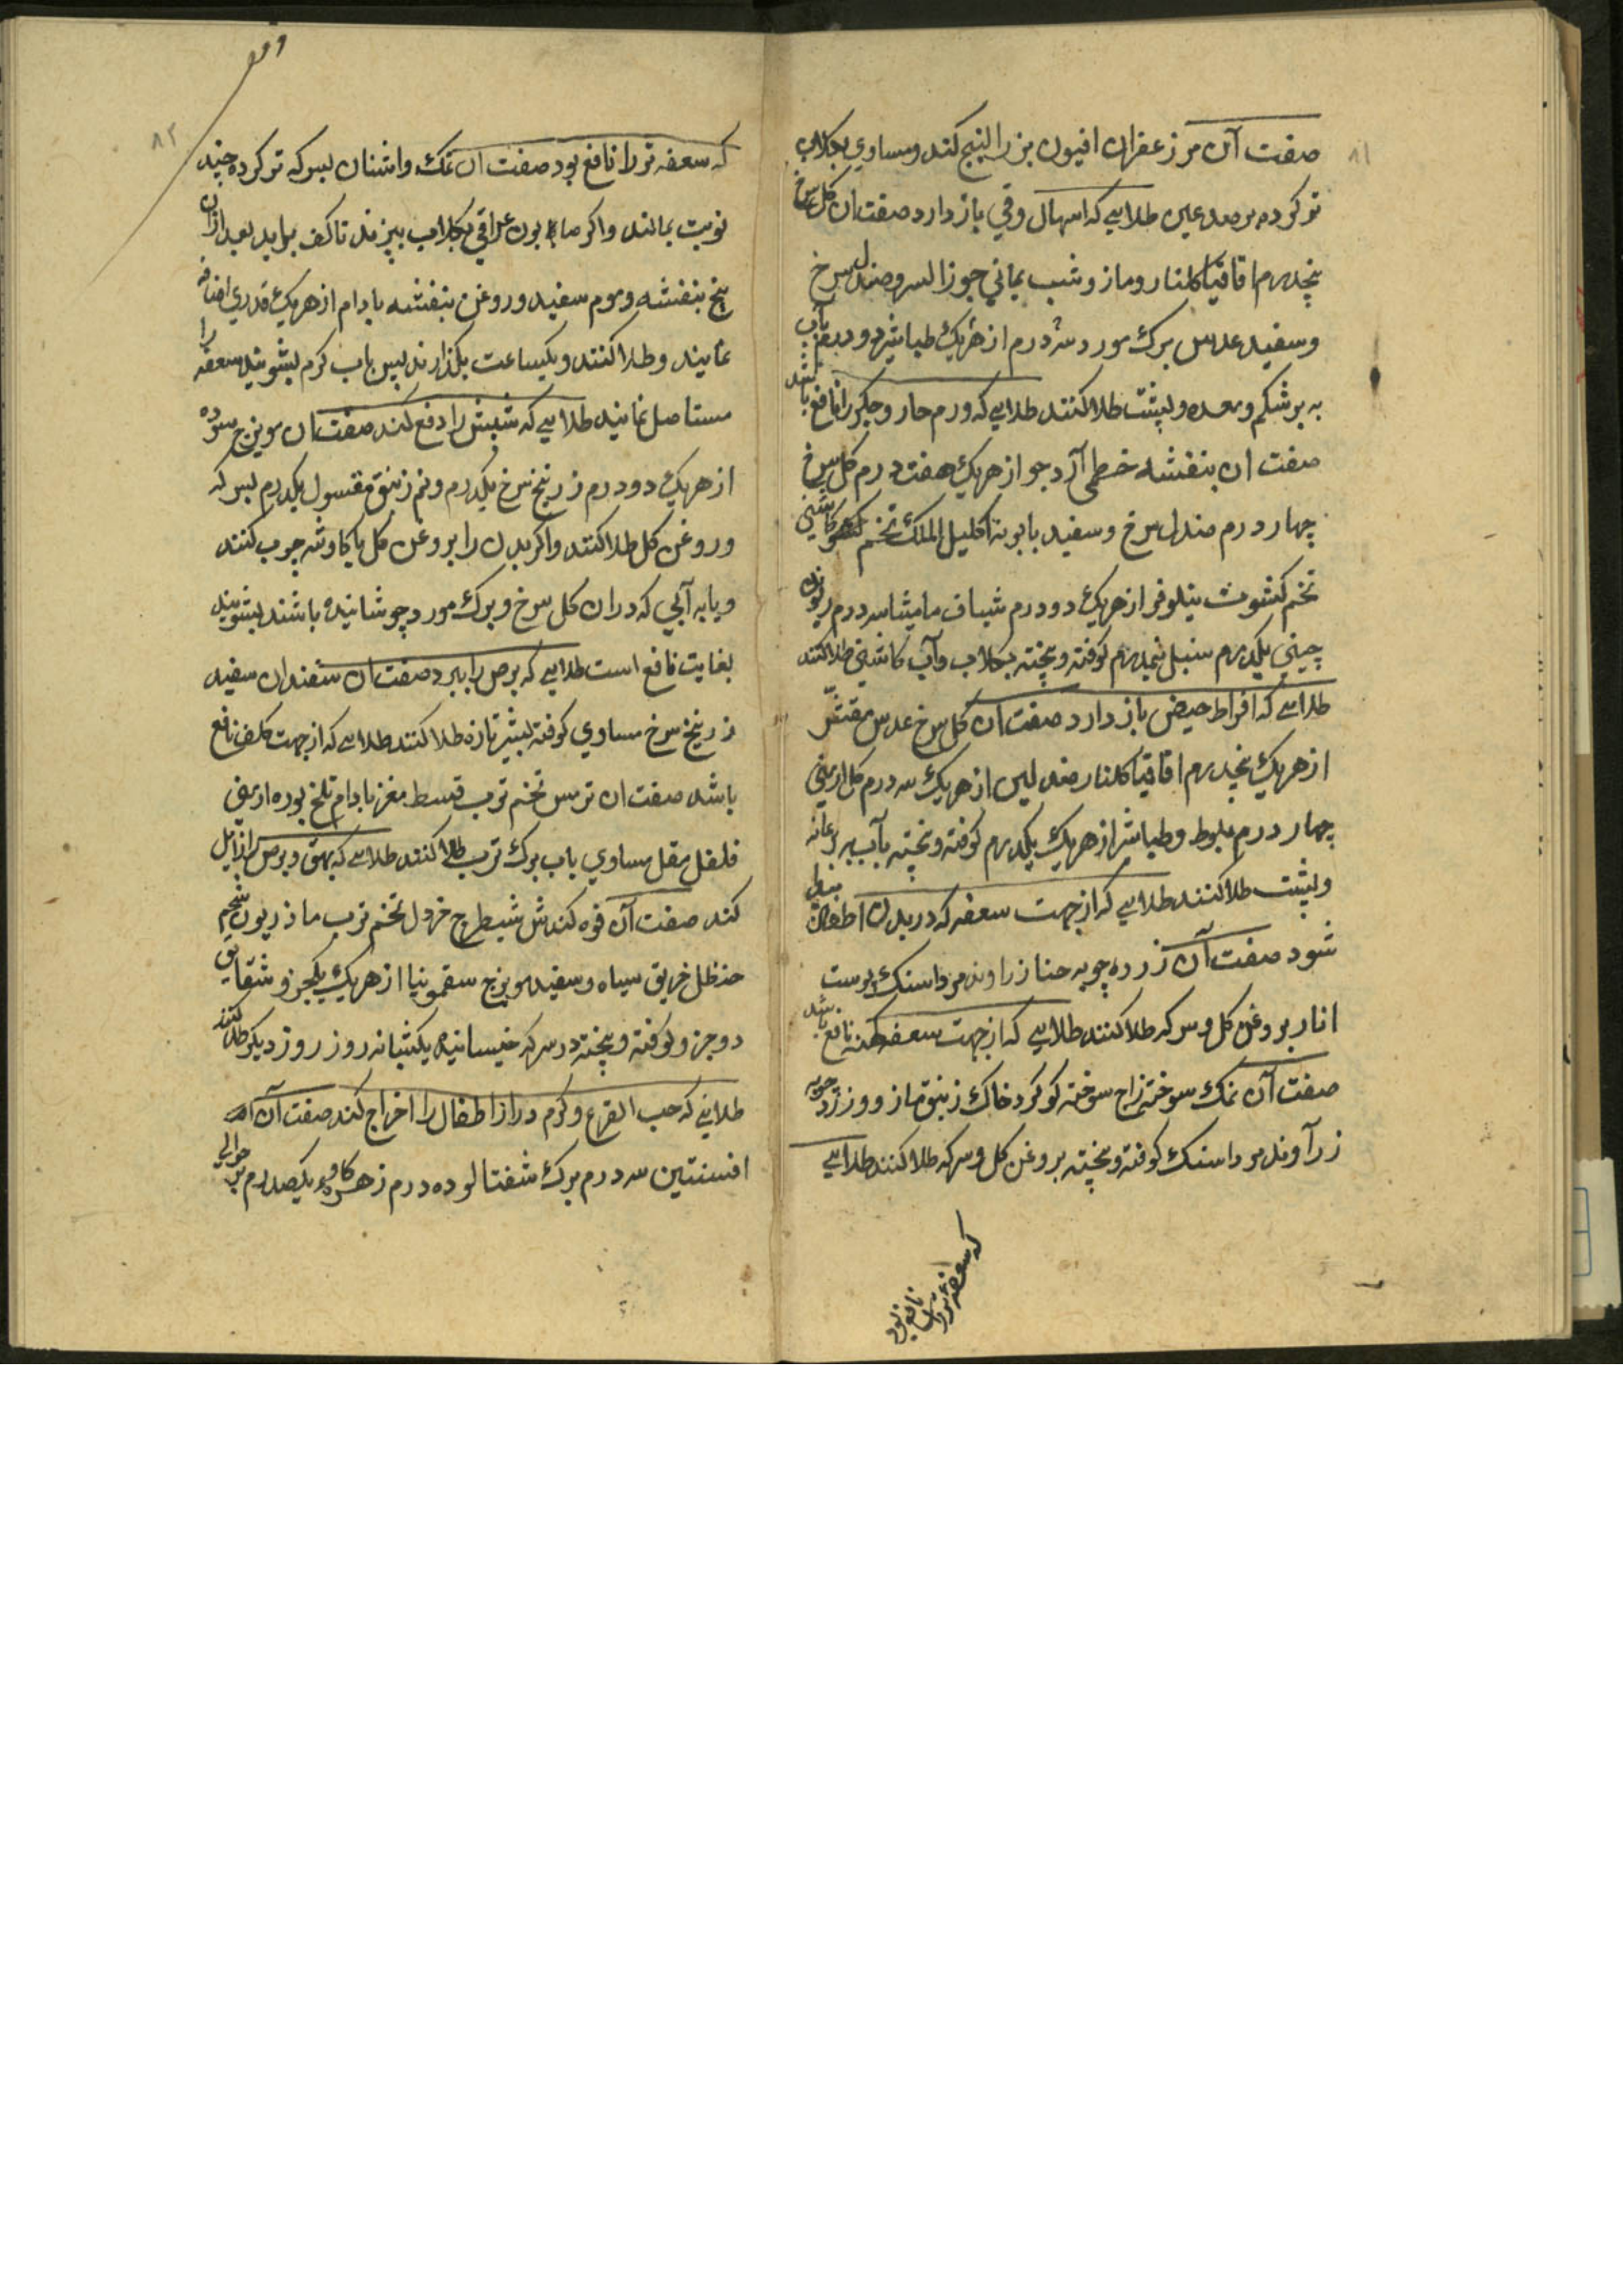 ۸۱
صفت آن مر زعفران افیون بزر البنج کند و مساوی بکلاب
تر کرده بر صدعین طلایی که اسهال و قی باز دارد صفت ان کل سرخ
پنجدرم اقاقیا کلنار و مازو شب یمانی جوز السرو صندل سرخ
و سفید عدس برک مورد سه درم از هر یک طباشیر دو درم بآب
به بر شکم و معده و پشت طلا کنند طلایی که ورم حار و جکر را نافع باشد
صفت ان بنفشه خطمی آرد جو از هر یک هفت درم کل سرخ
چهار درم صندل سرخ و سفید بابونه اکلیل الملک تخم کاشنی
تخم کشوث نیلوفر از هر یک دو درم شیاف مامیثا سه درم ریوند
چینی یکدرم سنبل نیمدرم کوفته و بیخته بکلاب و آب کاشنی طلا کنند
طلایی که افراط حیض باز دارد صفت آن کل سرخ عدس مقشر
از هر یک پنجدرم اقاقیا کلنار صندلین از هر یک سه درم کل ارمنی
چهار درم بلوط و طباشیر از هر یک یکدرم کوفته و بیخته بآب بر عانه
و پشت طلا کنند طلایی که از جهت سعفه که در بدن اطفال پیدا
شود صفت آن زرده چوبه حنا زراوند مرداسنک پوست
انار بروغن کل و سرکه طلا کنند طلایی که از جهت سعفه کهنه نافع باشد
صفت آن نمک سوخته زاج سوخته کوکرد خاک زیبق مازو و زرد چوبه
زرآوند مرداسنک کوفته و بیخته بروغن کل و سرکه طلا کنند طلایی
که سعفه تر را
نافع بود
وقف
۸۲
که سعفه تر را نافع بود صفت ان نمک و اشنان بسرکه تر کرده چند
نوبت بمالند و اکر صابون عراقی بکلاب بپزند تا کف براید بعد ازان
بیخ بنفشه و موم سفید و روغن بنفشه بادام از هر یک قدری اضافه
نمایند و طلا کنند و یکساعت بکذارند پس باب کرم بشویند سعفه را
مستاصل نمایند طلایی که شپش را دفع کند صفت ان مویزج سوده
از هر یک دو درم زرنیخ سرخ یکدرم و نیم زیبق مقتول یکدرم بسرکه
و روغن کل طلا کنند و اکر بدن را بروغن کل یا کاوشه چرب کنند
و یا به آبی که دران کل سرخ و برک مورد جوشانیده باشند بشویند
بغایت نافع است طلایی که برص را ببرد صفت ان سفندان سفید
زرنیخ سرخ مساوی کوفته بشیر تازه طلا کنند طلایی که از جهت کلف نافع
باشد صفت ان ترمس تخم ترب قسط مغز بادام تلخ بوره ارمنی
فلفل مقل مساوی باب برک ترب طلا کنند طلایی که بهق و برص را زایل
کند صفت آن فوه کندش شیطرج خردل تخم ترب مازریون شحم
حنظل خربق سیاه و سفید مویزج سقمونیا از هر یک یکجزو شقایق
دو جزو کوفته و بیخته در سرکه خیسانیده یکشبانه روز روز دیکر طلا کنند
طلایی که حب القرع و کرم دراز اطفال را اخراج کند صفت آن
افسنتین سه درم برک شفتالو ده درم زهره کاو یکصد درم بر حوالی